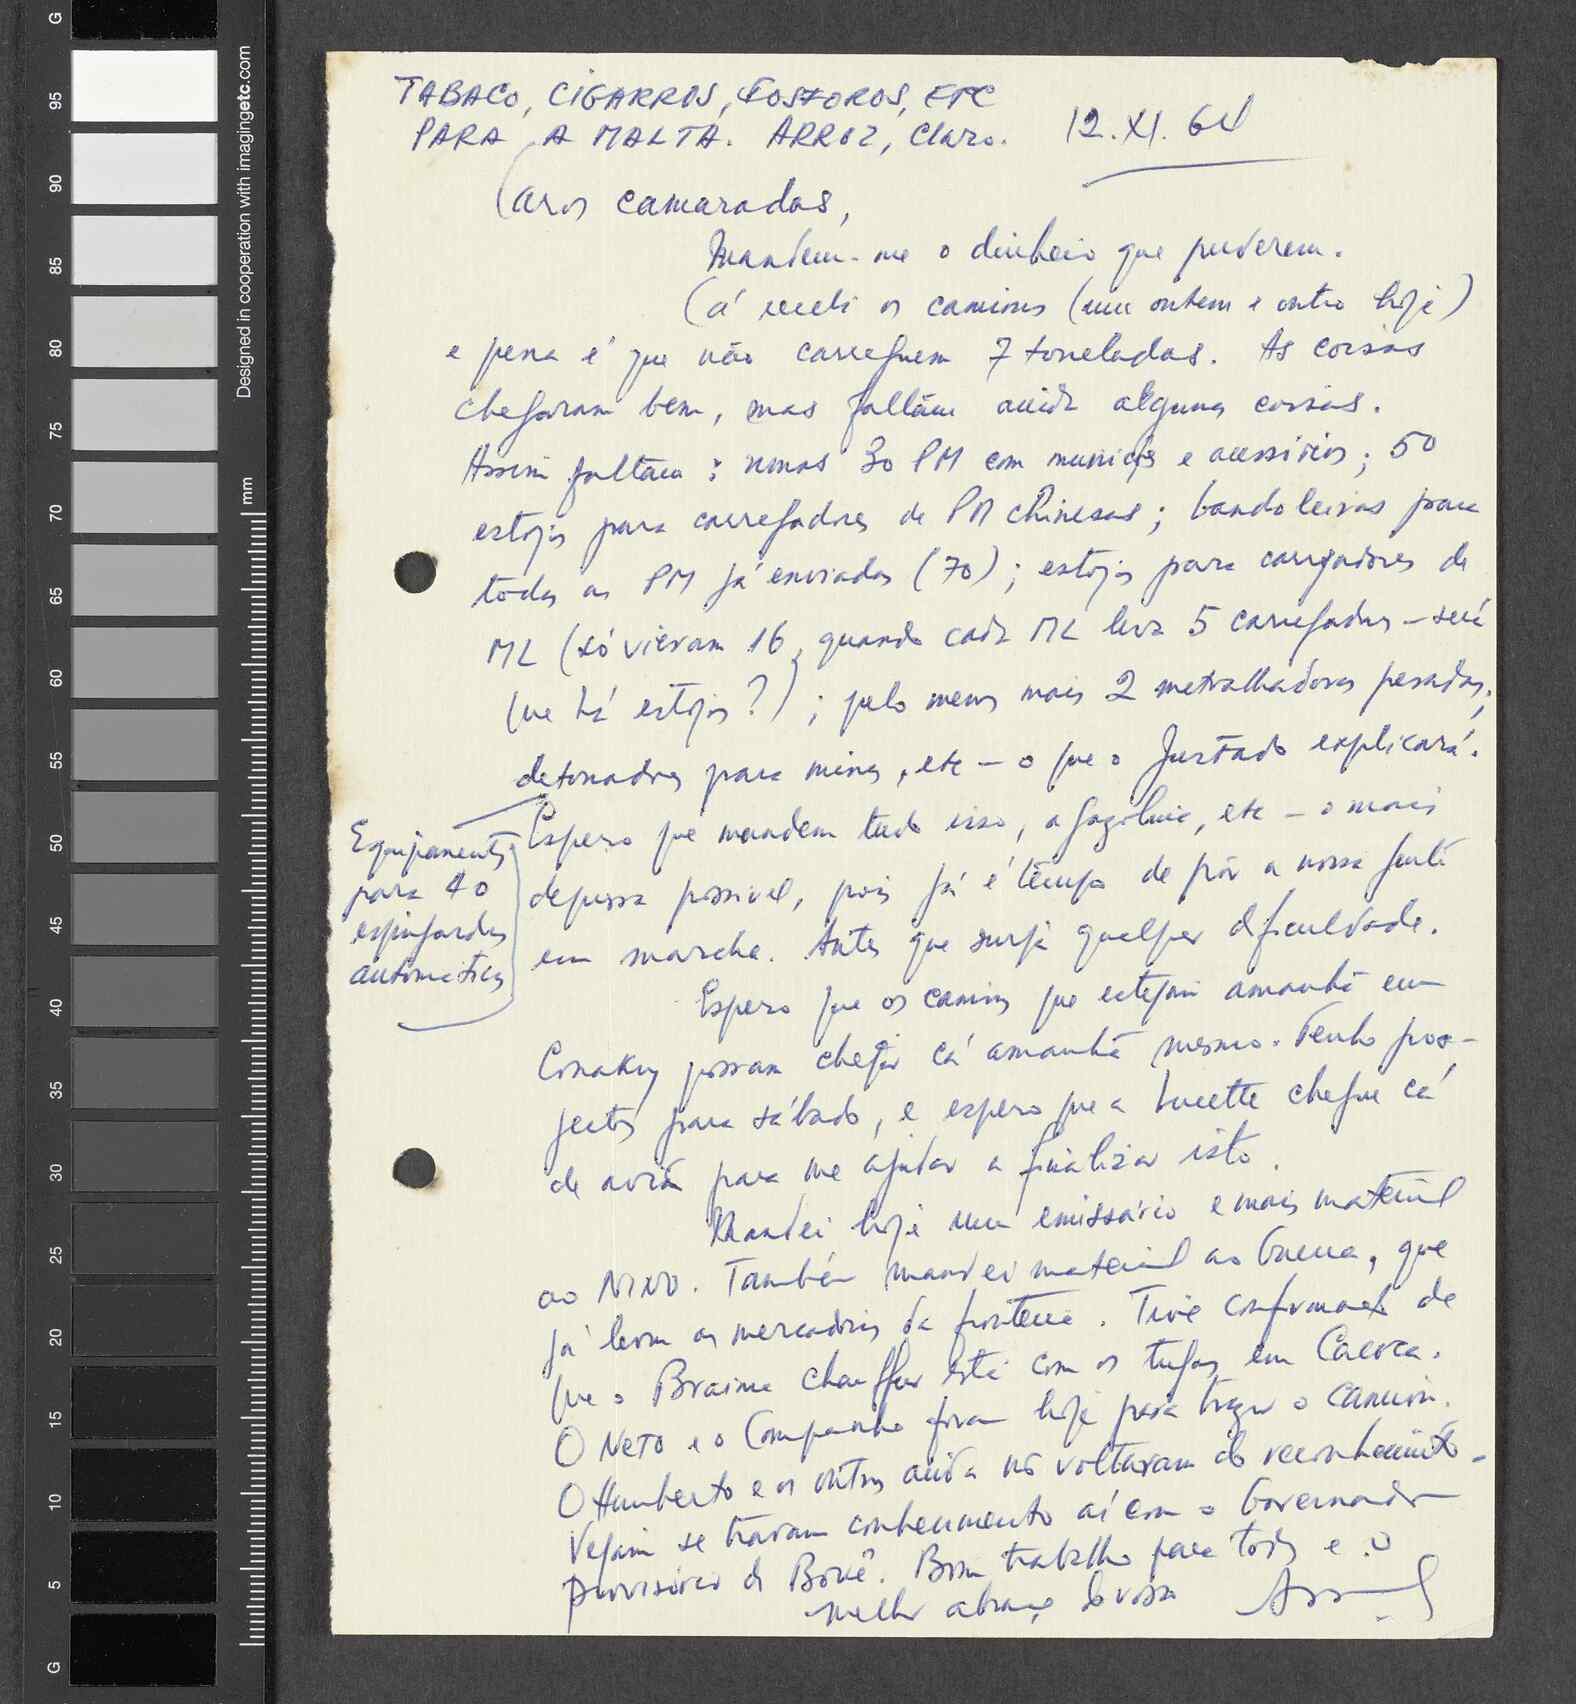 TABACO, CIGARROS, FOSFOROS, ETC
PARA A MALTA. ARROZ, claro.
12.XI.64
Caros camaradas,
Mandem-me o dinheiro que puderem.
Cá recebi os camions (um ontem e outro hoje)
e pena é que não carreguem 7 toneladas. As coisas
chegaram bem, mas faltam ainda algumas coisas.
Assim faltam: umas 30 PM com munições e acessórios; 50
estojos para carregadores de PM chinesas; bandoleiras para
todas as PM já enviadas (70); estojos para carregadores de
ML (só vieram 16, quando cada ML leva 5 carregadores – será
que há estojos?); pelo menos mais 2 metralhadoras pesadas,
detonadores para minas, etc – o que o Furtado explicará.
Equipamentos
para 40
espingardas
automáticas
Espero que mandem tudo isso, a gazolina, etc – o mais
depressa possivel, pois já é tempo de pôr a nossa gente
em marcha. Antes que surja qualquer dificuldade.
Espero que os camions que estejam amanhã em
Conakry possam chegar cá amanhã mesmo. Tenho pro-
jectos para sábado, e espero que a Lucette chegue cá
de avião para me ajudar a finalizar isto.
Mandei hoje um emissário e mais material
ao NINO. Também mandei material ao Guerra, que
já levou as mercadorias da fronteira. Tive confirmação de
que o Braima chauffeur está com os tugas em Cacoca.
O NETO e o Companho foram hoje para trazer o camion.
O Humberto e os outros ainda não voltaram do reconhecimento.
Vejam se travam conhecimento aí com o Governador
provisório de Boké. Bom trabalho para todos e o
melhor abraço do vosso